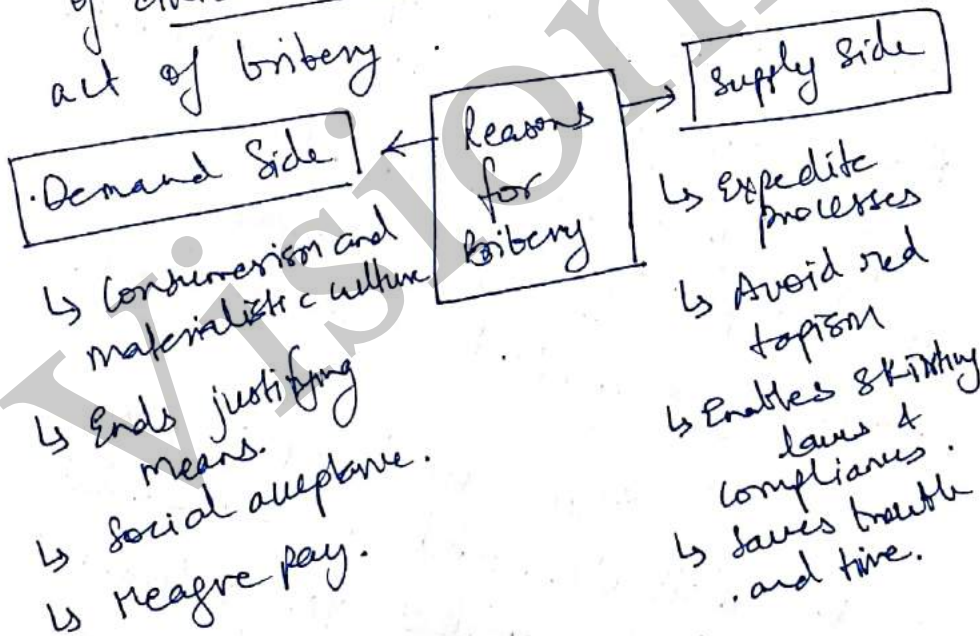 of
act of bribery.
Demand Side
Reasons
for
bribery
Supply Side
↳ Consumerism and
materialistic culture
↳ Ends justifying
means.
↳ Social acceptance.
↳ Meagre pay.
↳ Expedite
processes
↳ Avoid red
tapism
↳ Enables skirting
laws &
compliances.
↳ Saves trouble
and time.
Vision